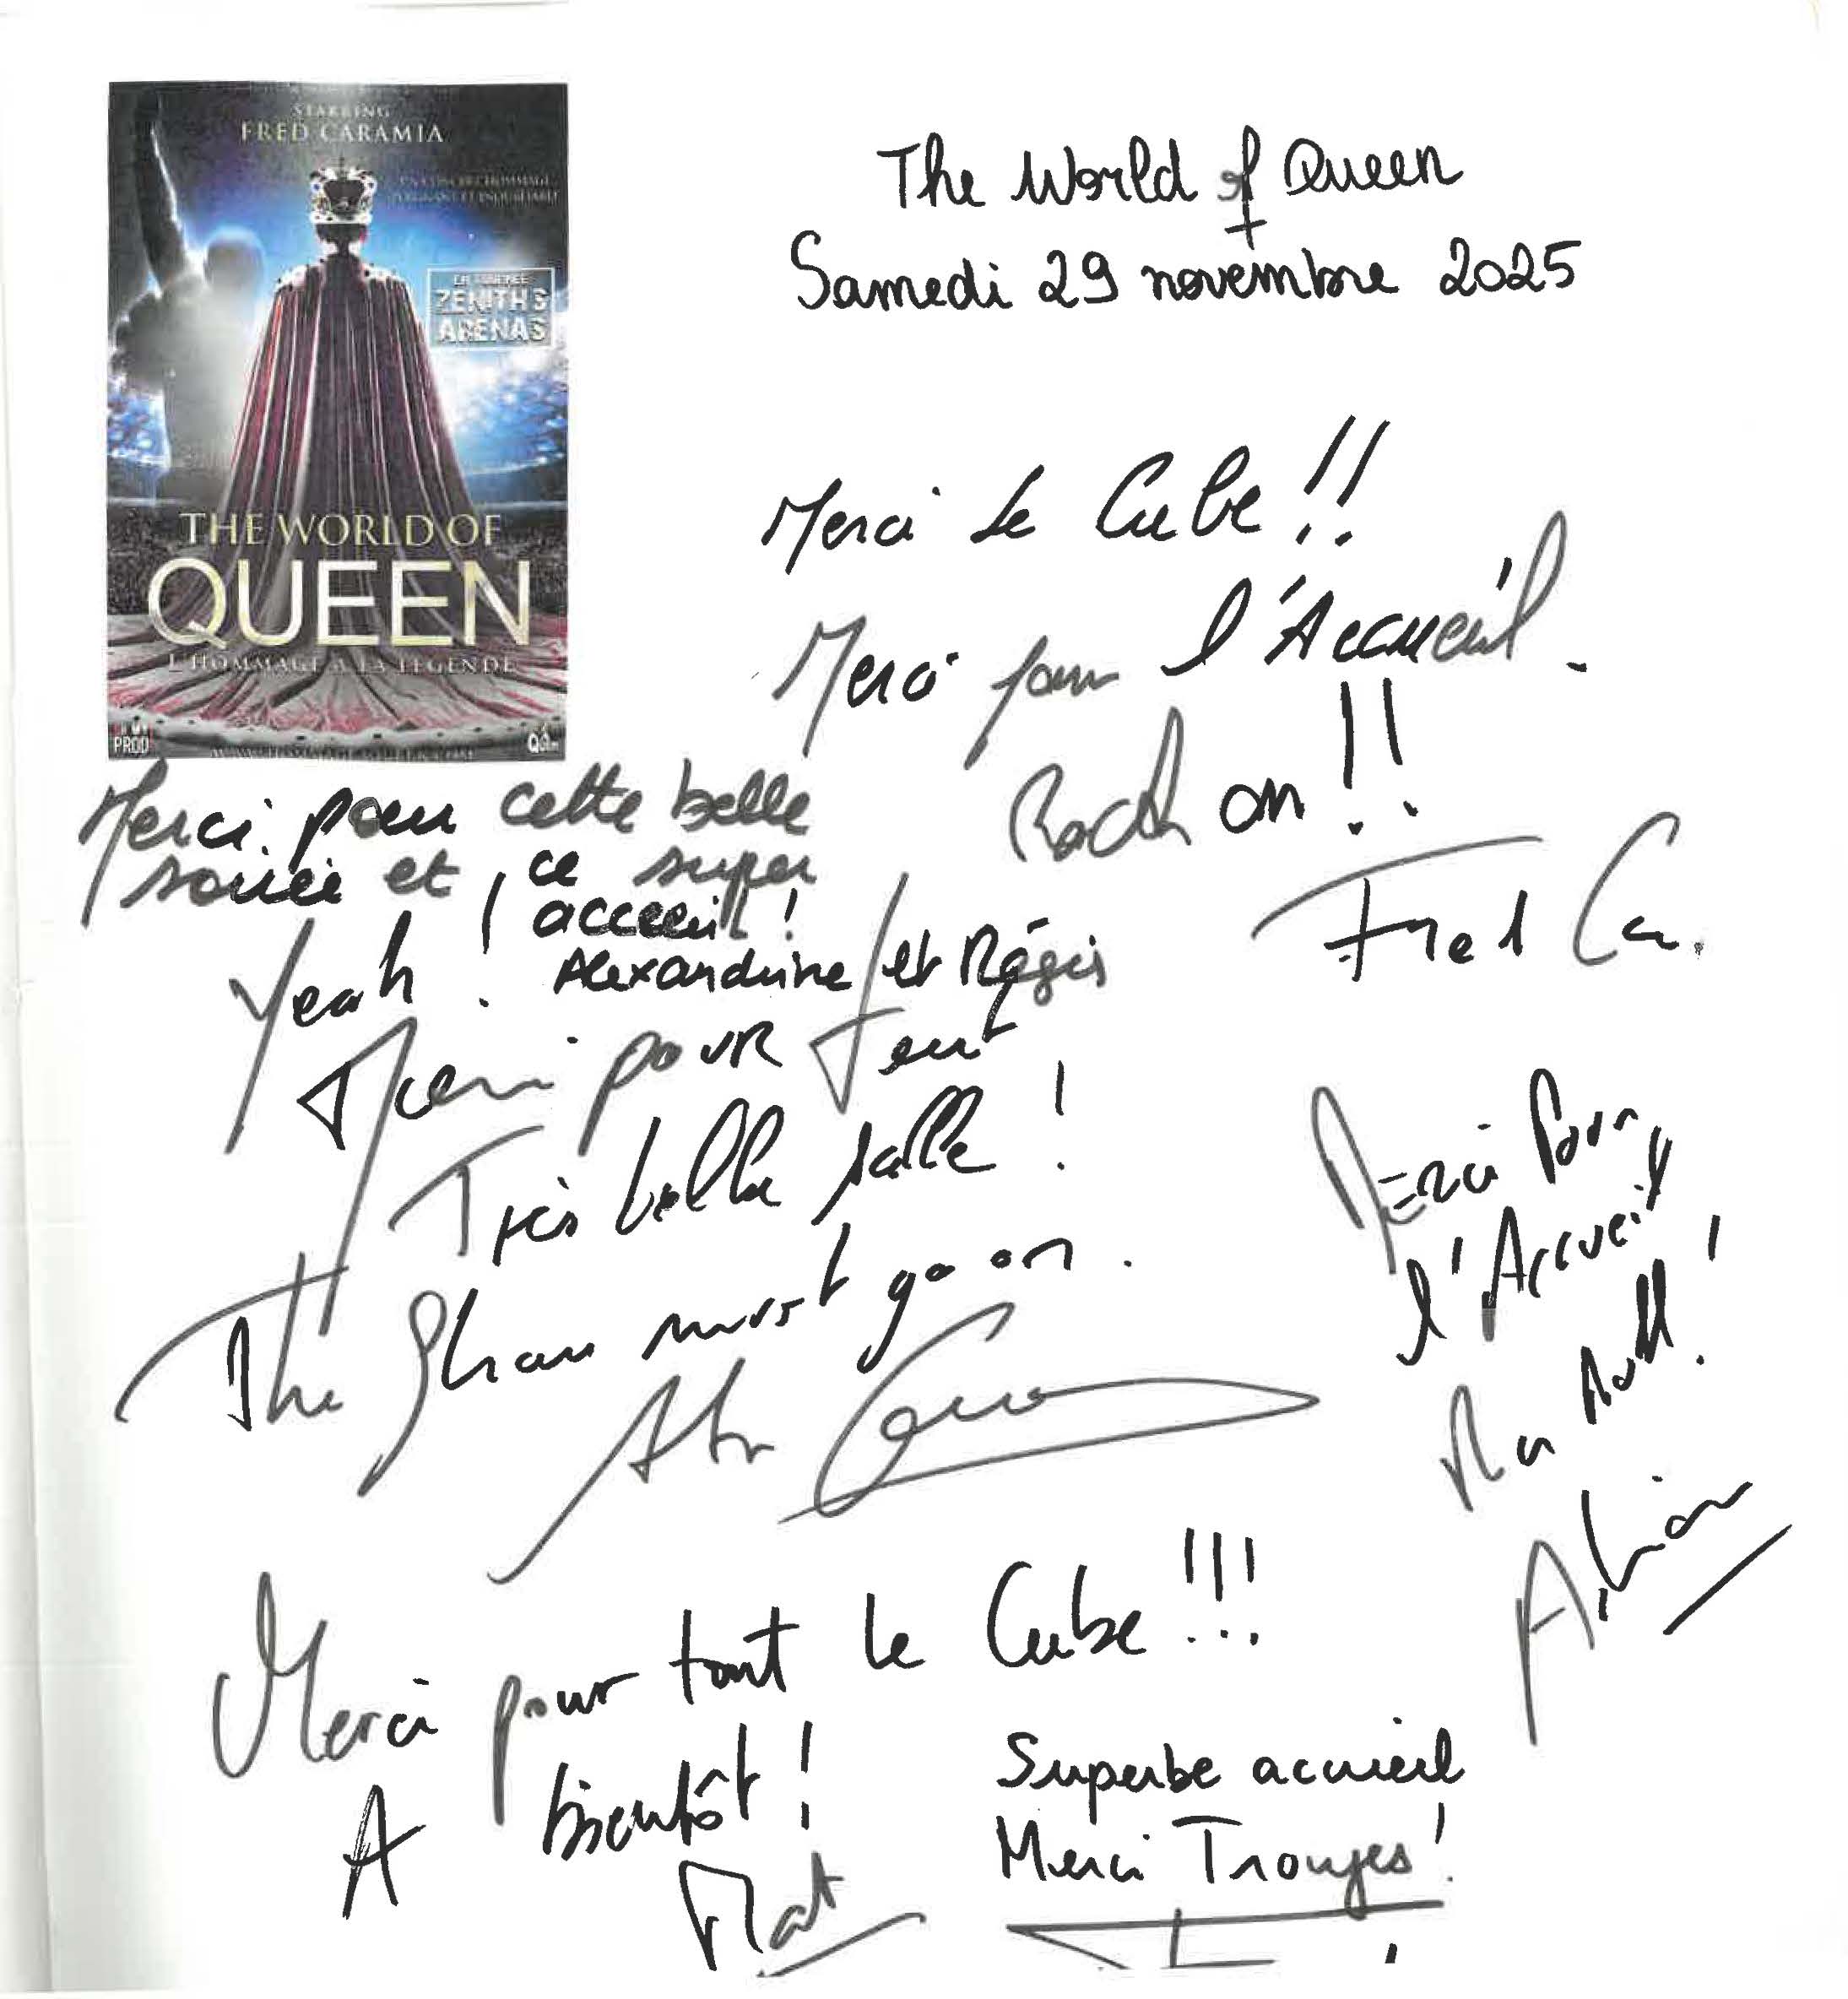 STARRING
FRED CARAMIA
LA TOURNÉE
ZENITHS
ARENAS
THE WORLD OF
QUEEN
L'HOMMAGE A LA LEGENDE
PROD
The World of Queen
Samedi 29 novembre 2025
Merci Le Cube !!
Merci pour l'Accueil.
Rock on !!
Fred Ca.
Merci pour cette belle
soirée et ce super
acceuil !
Alexandrine et Régis
Yeah !
Merci pour tout
Très belle salle !
The Show must go on.
Merci pour
l'Accueil
Merci pour tout le Cube !!!
A bientôt !
Mat
Superbe accueil
Merci Troyes !